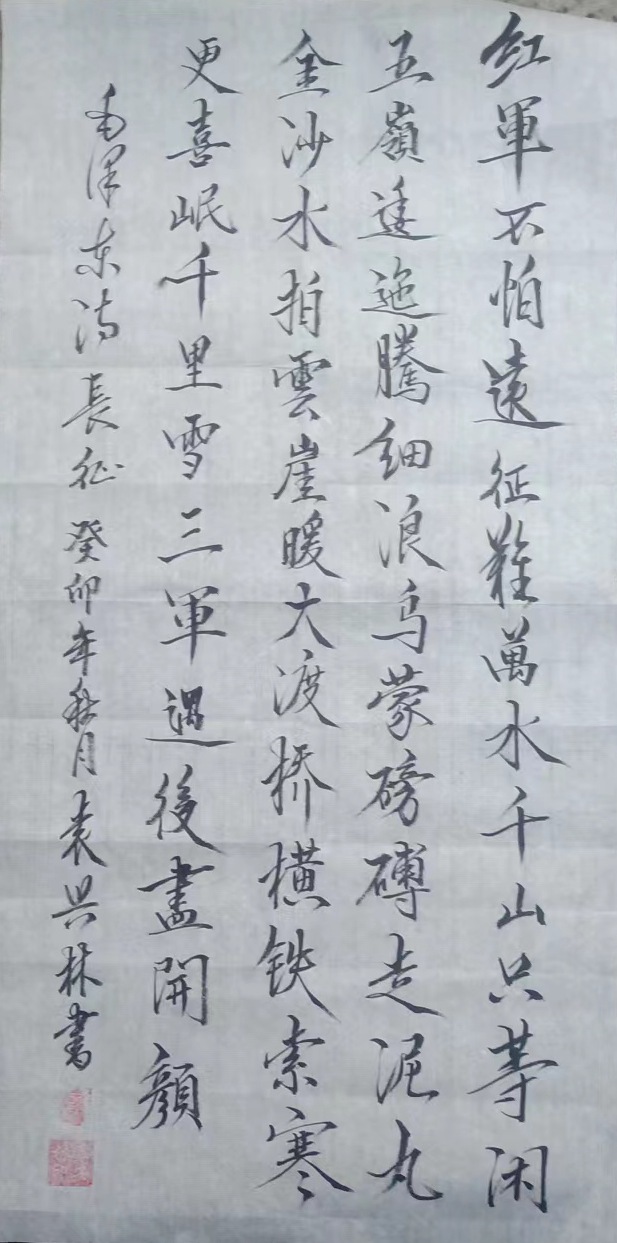 红軍不怕遠征難萬水千山只等闲
五嶺逶迤腾细浪乌蒙磅礴走泥丸
金沙水拍雲崖暖大渡桥横铁索寒
更喜岷千里雪三軍過後盡開颜
毛泽东诗長征癸卯年秋月袁兴林書